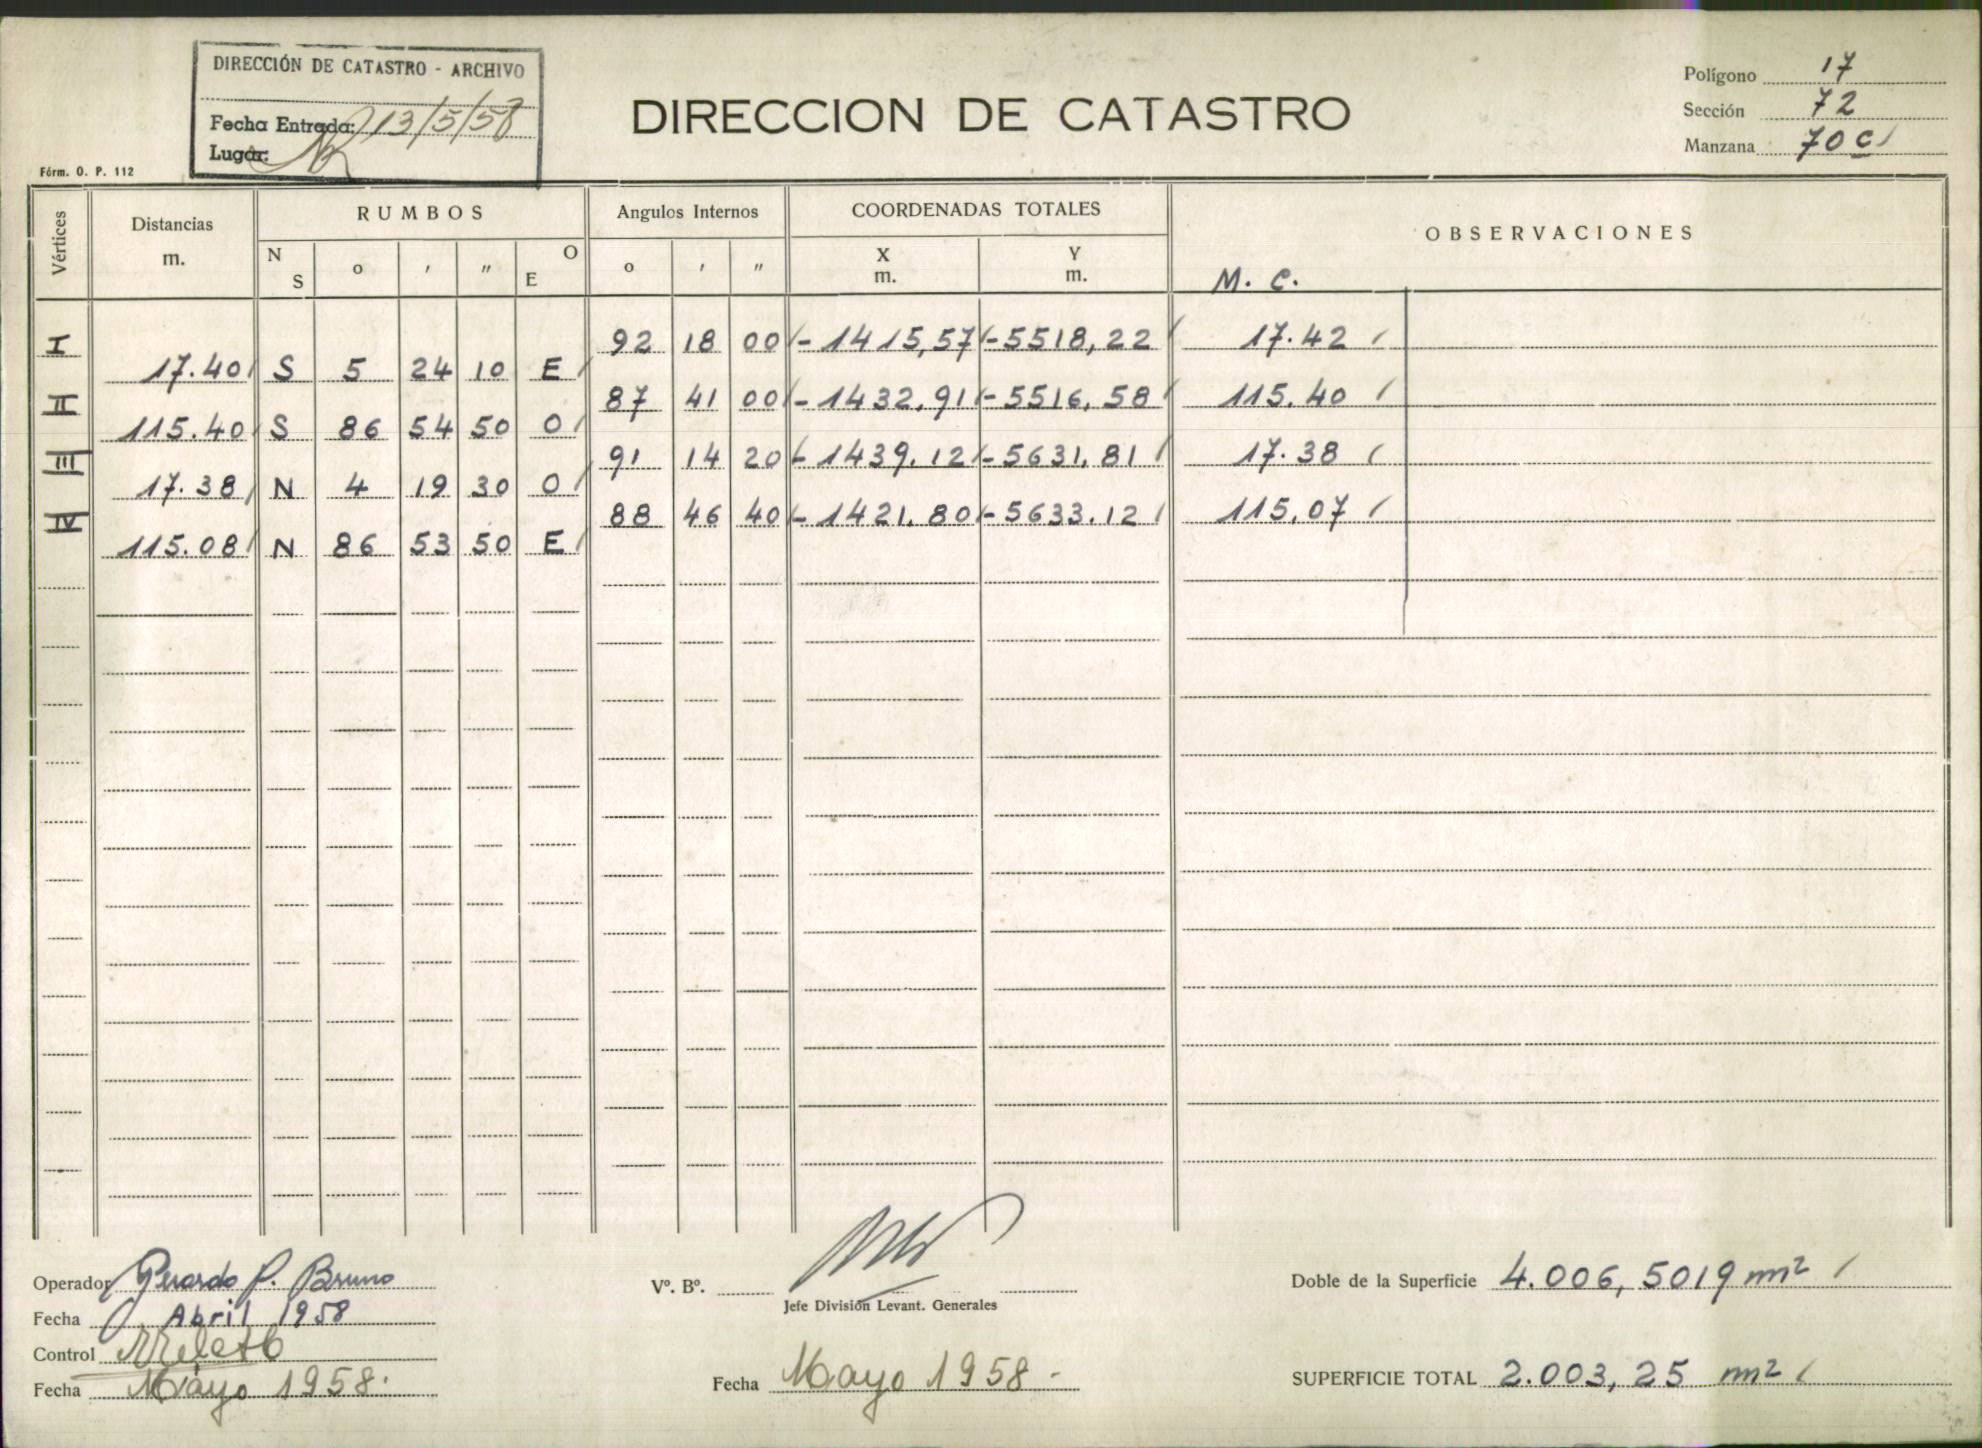 DIRECCIÓN DE CATASTRO - ARCHIVO
Fecha Entrada: 13/5/58
Lugar:
Fórm. O. P. 112
DIRECCION DE CATASTRO
Polígono 17
Sección 72
Manzana 70 c
Vértices Distancias m. RUMBOS Angulos Internos COORDENADAS TOTALES OBSERVACIONES
N S o ' " O E o ' " X m. Y m. M. C.
I 92 18 00 - 1415,57 - 5518,22 17.42
17.40 S 5 24 10 E
II 87 41 00 - 1432.91 - 5516.58 115.40
115.40 S 86 54 50 O
III 91 14 20 - 1439.12 - 5631.81 17.38
17.38 N 4 19 30 O
IV 88 46 40 - 1421.80 - 5633.12 115,07
115.08 N 86 53 50 E
Operador Gerardo P. Bruno
Fecha Abril 1958
Control
Fecha Mayo 1958.
Vº. Bº.
Jefe División Levant. Generales
Fecha Mayo 1958 -
Doble de la Superficie 4.006,5019 m2
SUPERFICIE TOTAL 2.003,25 m2